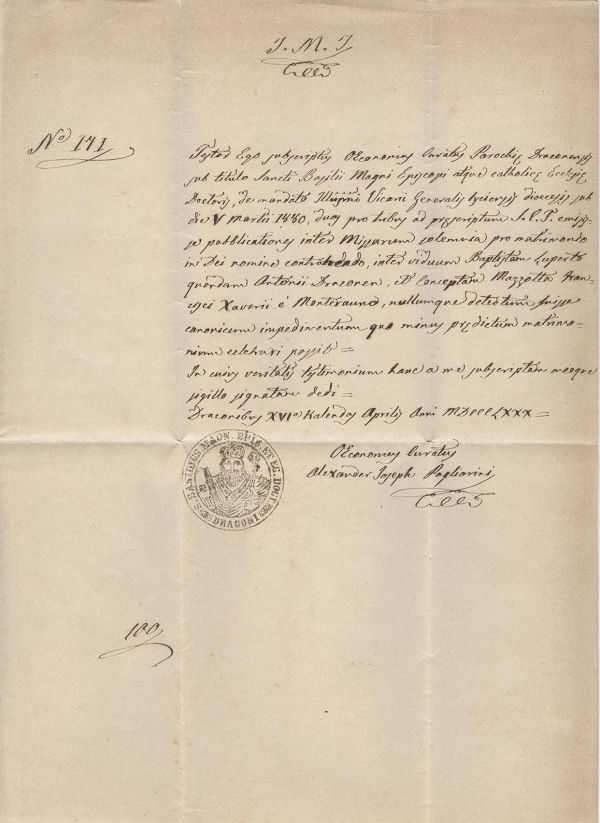 J. M. J
No 141
Testor Ego subscriptus OEconomus Curatus Parochię Draconensis
sub titulo Sancti Basilii Magni Episcopi atque catholicę Ecclesię
Doctoris, de mandato Illũmi Vicarii Generalis Lyciensis diocesis sub
die V Martii 1880, duas pro tribus ad pręscriptum S. C. T. emisis-
se pubblicationes inter Missarum solemnia pro matrimonio
in Dei nomine contrahendo, inter viduum Baptistam Luperto
quondam Antonii Draconen, et Conceptam Mazzotta Fran-
cisci Xaverii e Monterauno, nullumque detectum fuisse
canonicum impedimentum quo minus prędictum matrimo-
nium celebrari possit =
In cuius veritatis testimonium hanc a me subscriptam meoque
sigillo signatam dedi =
Draconibus XVIo Kalendas Aprilis Anni MDCCCLXXX =
OEconomus Curatus
Alexander Joseph Pagliarini
S. BASILIUS MAGN. EPIS. ET EC. DOCT.
DRAGONI
100